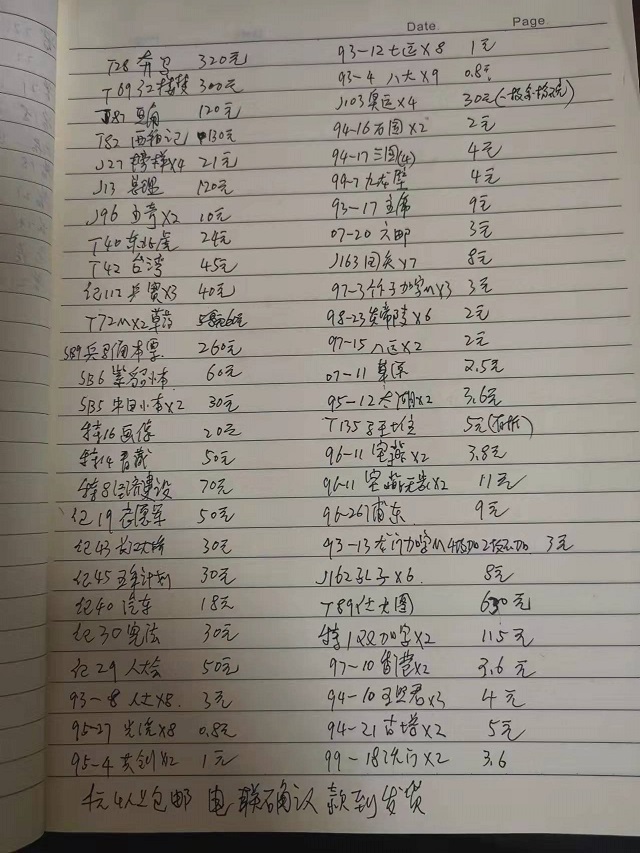 Date Page
T28 奔马 320元
T69 红楼梦 300元
T87 京角 120元
T82 西箱记 130元
J27 榜样x4 21元
J13 总理 120元
J96 x2 10元
T40 东北虎 24元
T42 台湾 45元
纪112 乒赛x3 40元
T72M x2 草药 60元
SB9 兵马俑本票 260元
SB6 紫貂小本 60元
SB5 小本x2 30元
特16 画像 20元
特14 青藏 50元
特8 经济建设 70元
纪19 志愿军 50元
纪43 长江大桥 30元
纪45 五年计划 30元
纪40 汽车 18元
纪30 宪法 30元
纪29 人大会 50元
93-8 x8 3元
95-27 x8 0.8元
95-4 x2 1元
93-12 七运x8 1元
93-4 八大x9 0.8元
J103 奥运x4 30元
94-16 x2 2元
94-17 三国(4) 4元
99-7 九龙壁 4元
93-17 主席 9元
07-20 六邮 3元
J163 国庆x7 8元
97-3 加字M x3 3元
98-23 炎帝陵x6 2元
97-15 八运x2 2元
07-11 2.5元
95-12 太湖x2 3.6元
T135 5元
96-11 x2 3.8元
96-11 x2 11元
96-26 浦东 9元
93-13 龙门加字M 4 3元
J162 孔子x6 8元
T89 仕女图 630元
特 加字x2 11.5元
97-10 香港x2 3.6元
94-10 王昭君x3 4元
94-21 古塔x2 5元
99-18 x2 3.6
包邮 电联确认 款到发货